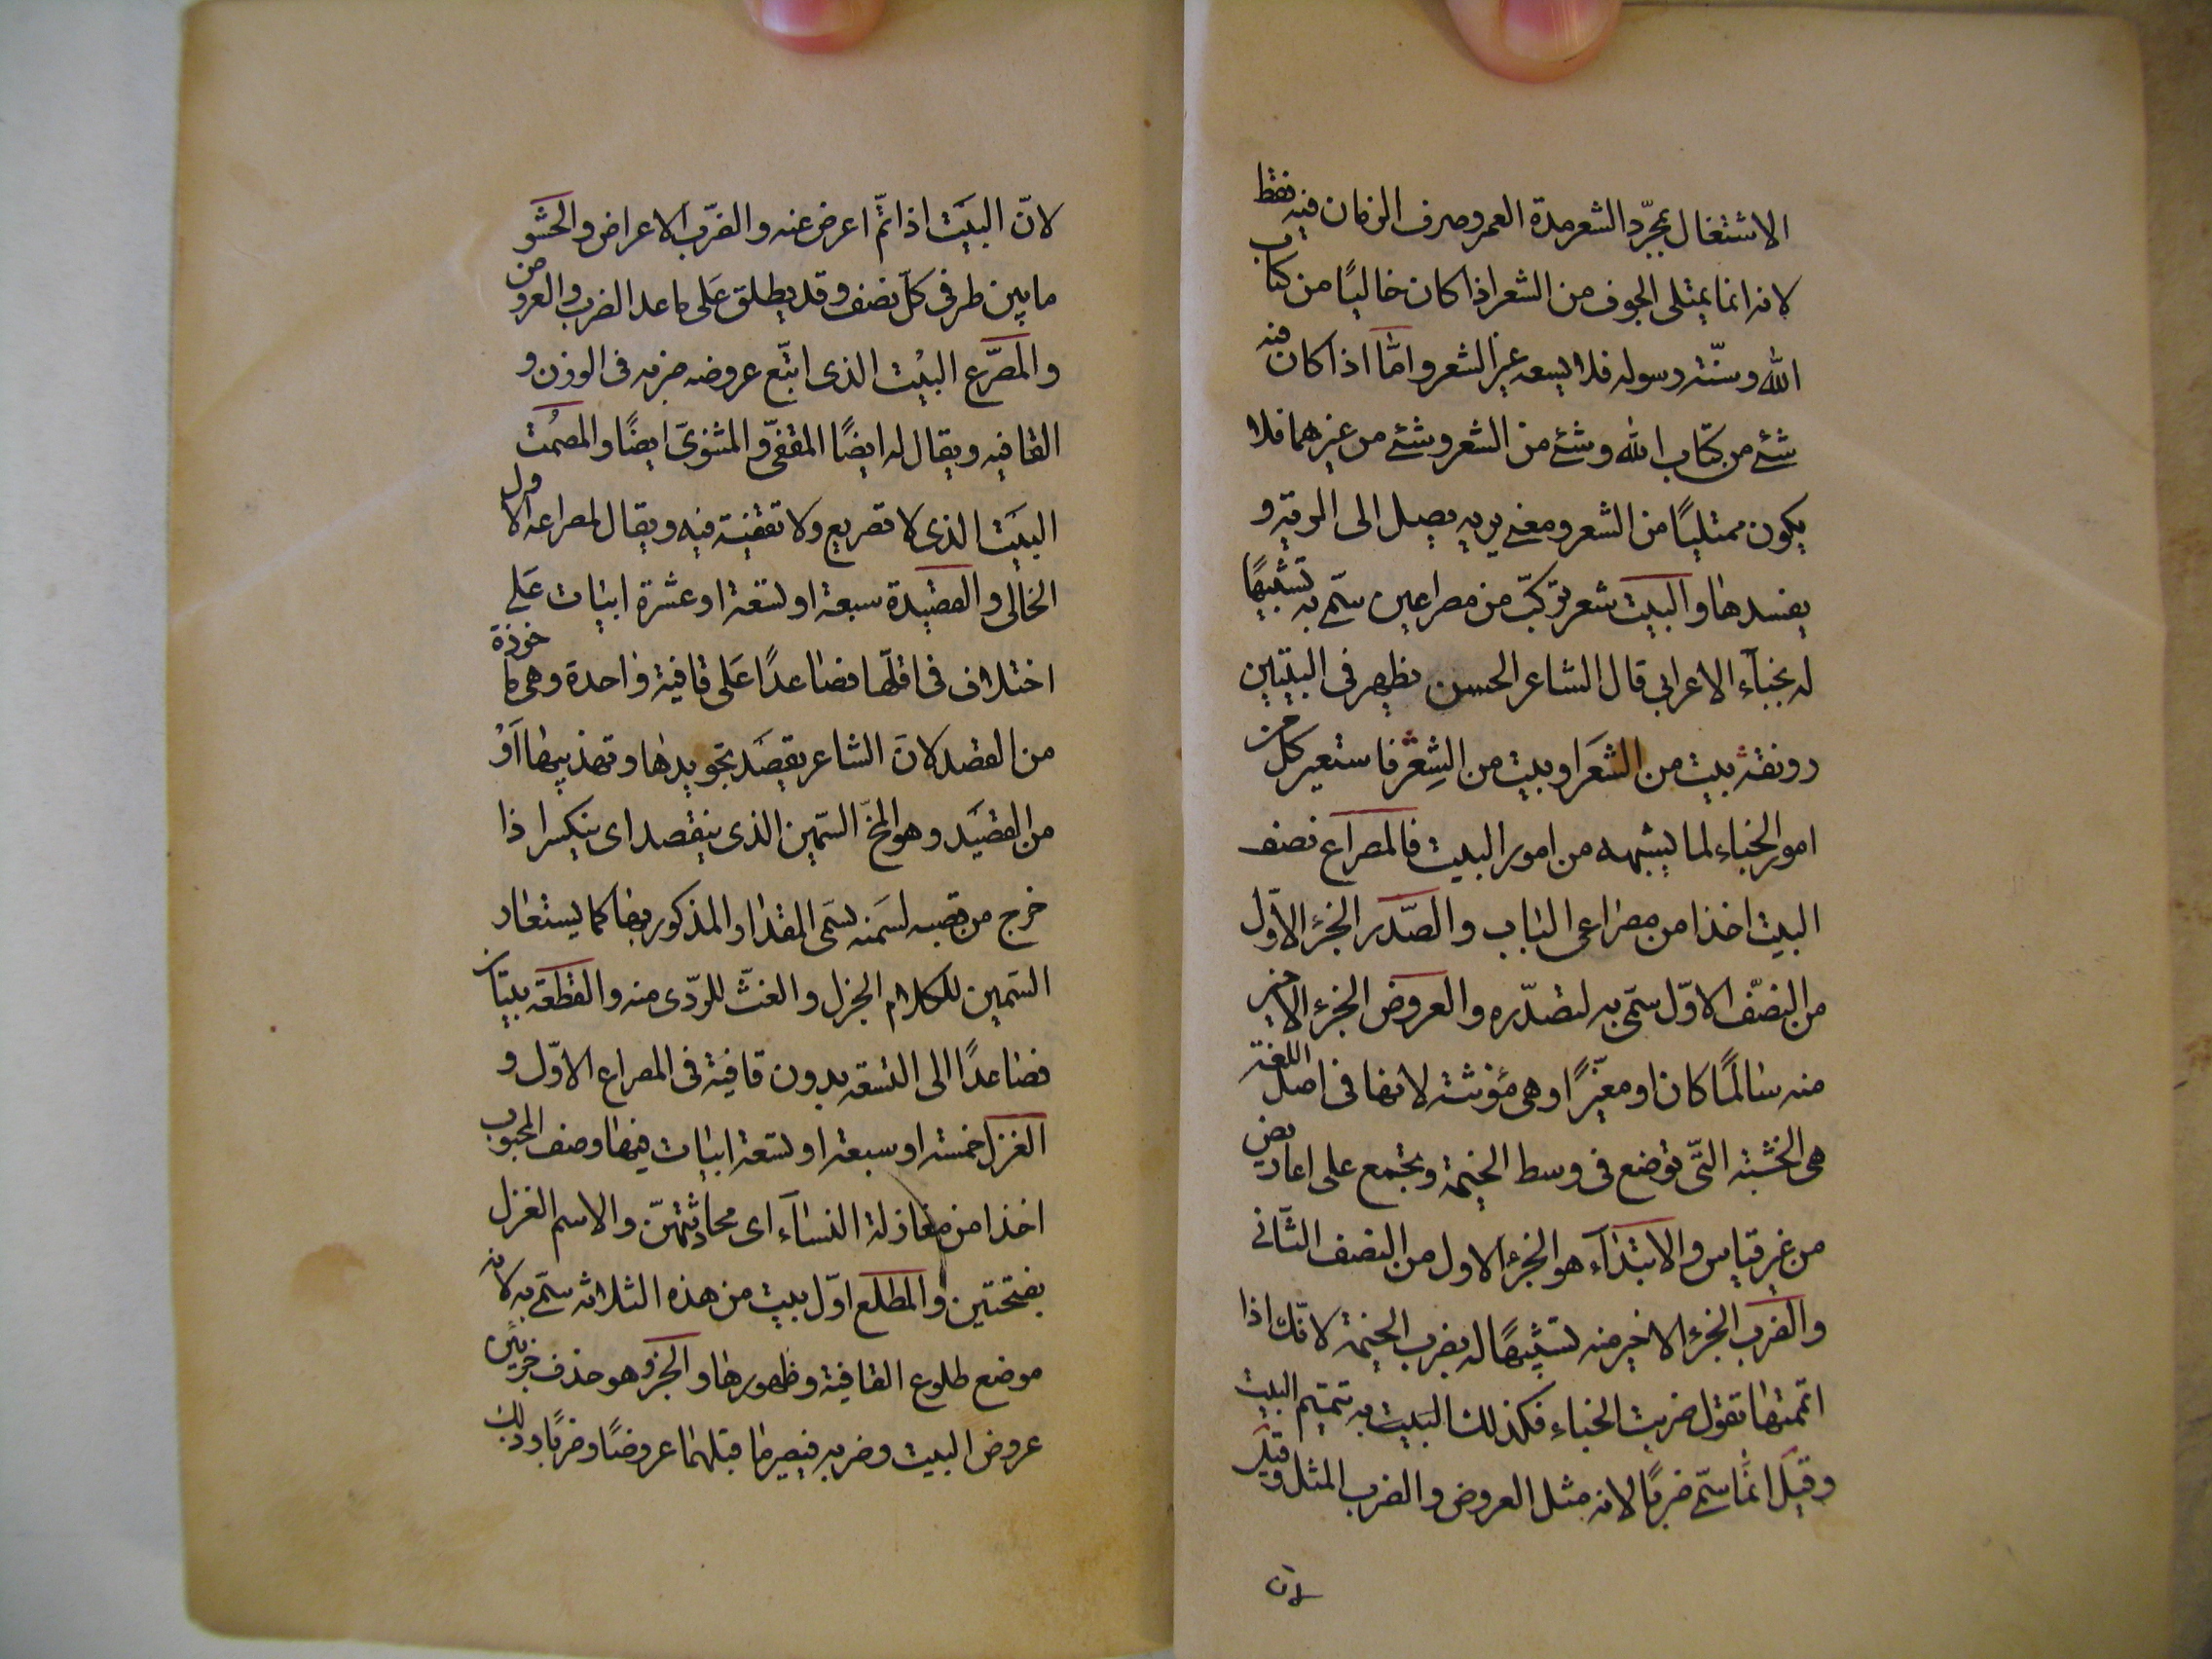 الاشتغال بمجرّد الشعر مدة العمر وصرف الزمان فيه فقط
لانه انما يمتلى الجوف من الشعر اذا كان خاليًا من كتاب
الله وسنّة رسوله فلا يسعه غير الشعر وامّا اذا كان فيه
شئ من كتاب الله وشئ من الشعر وشئ من غيرهما فلا
يكون ممتليًا من الشعر ومعنى يريه يصل الى الريه و
يفسدها والبيت شعر تركّب من مصراعين سمّى به تشبيهًا
له بخبآء الاعرابي قال الشاعر الحسن يظهر فى البيتين
رونقه بيت من الشَعَر او بيت من الشِعْر فاستعير كل من
امور الخباء لما يشبهه من امور البيت فالمصراع نصف
البيت اخذا من مصراعى الباب والصّدر الجزء الاوّل
من النصف الاوّل سمّى به لتصدّره والعروض الجزء الاخير
منه سالمًا كان او مغيّرًا وهى مؤنثة لانها فى اصل اللغة
هى الخشبة التّى توضع فى وسط الخيمة وتجمع على اعاريض
من غير قياس والابتدآء هو الجزء الاول من النصف الثّانى
والضرب الجزء الاخير منه تشبيهًا له بضرب الخيمة لانّك اذا
اتممتها تقول ضربت الخباء فكذلك البيت به تتميم البيت
وقيل انّما سمّى ضربًا لانه مثل العروض والضرب المثل وقيل
لان
لانّ البيَت اذا تمّ اعرض عنه والضّرب الاعراض والحشو
ما بين طرفى كلّ نصف وقد يطلق عَلى ما عدا الضرب والعروض
والمصرّع البيْت الذى اتبّع عروضه ضربه فى الوزن و
القافيه ويقال له ايضًا المقفىّ والمثنويّ ايضًا والمصمُت
البيَت الذى لا تصريع ولا تقفية فيه ويقال لمصراعه الاول
الخالى والقصيدة سبعة او تسعة او عشرة ابيات عَلى
اختلاف فى اقلّها فصاعدًا عَلى قافية واحدة وهى ماخوذة
من القصد لانّ الشاعر يقصَد تجويدها وتهذيبها اَوْ
من القصيَد وهو المخّ السّمين الذى ينقصد اى ينكسر اذا
خرج من قصبه لسَمنه تسَمى المقدار المذكور بها كما يستعار
السّمين للكلام الجزل والغثّ للردّى منه والقطعة بيتان
فصاعدًا الى التسعة بدون قافية فى المصراع الاوّل و
الغزل خمسة او سبعة او تسعة ابيات فيها وصف المحبوب
اخذا من مغازلة النسآء اى محادثتهنّ والاسم الغزل
بفتحتين والمطلع اوّل بيت من هذه الثلاثه سمّى به لانه
موضع طلوع القافية وظهورها والجزؤ هو حذف جزئين
عروض البيت وضربه فيصير ما قبلهما عروضًا وضربًا وذلك